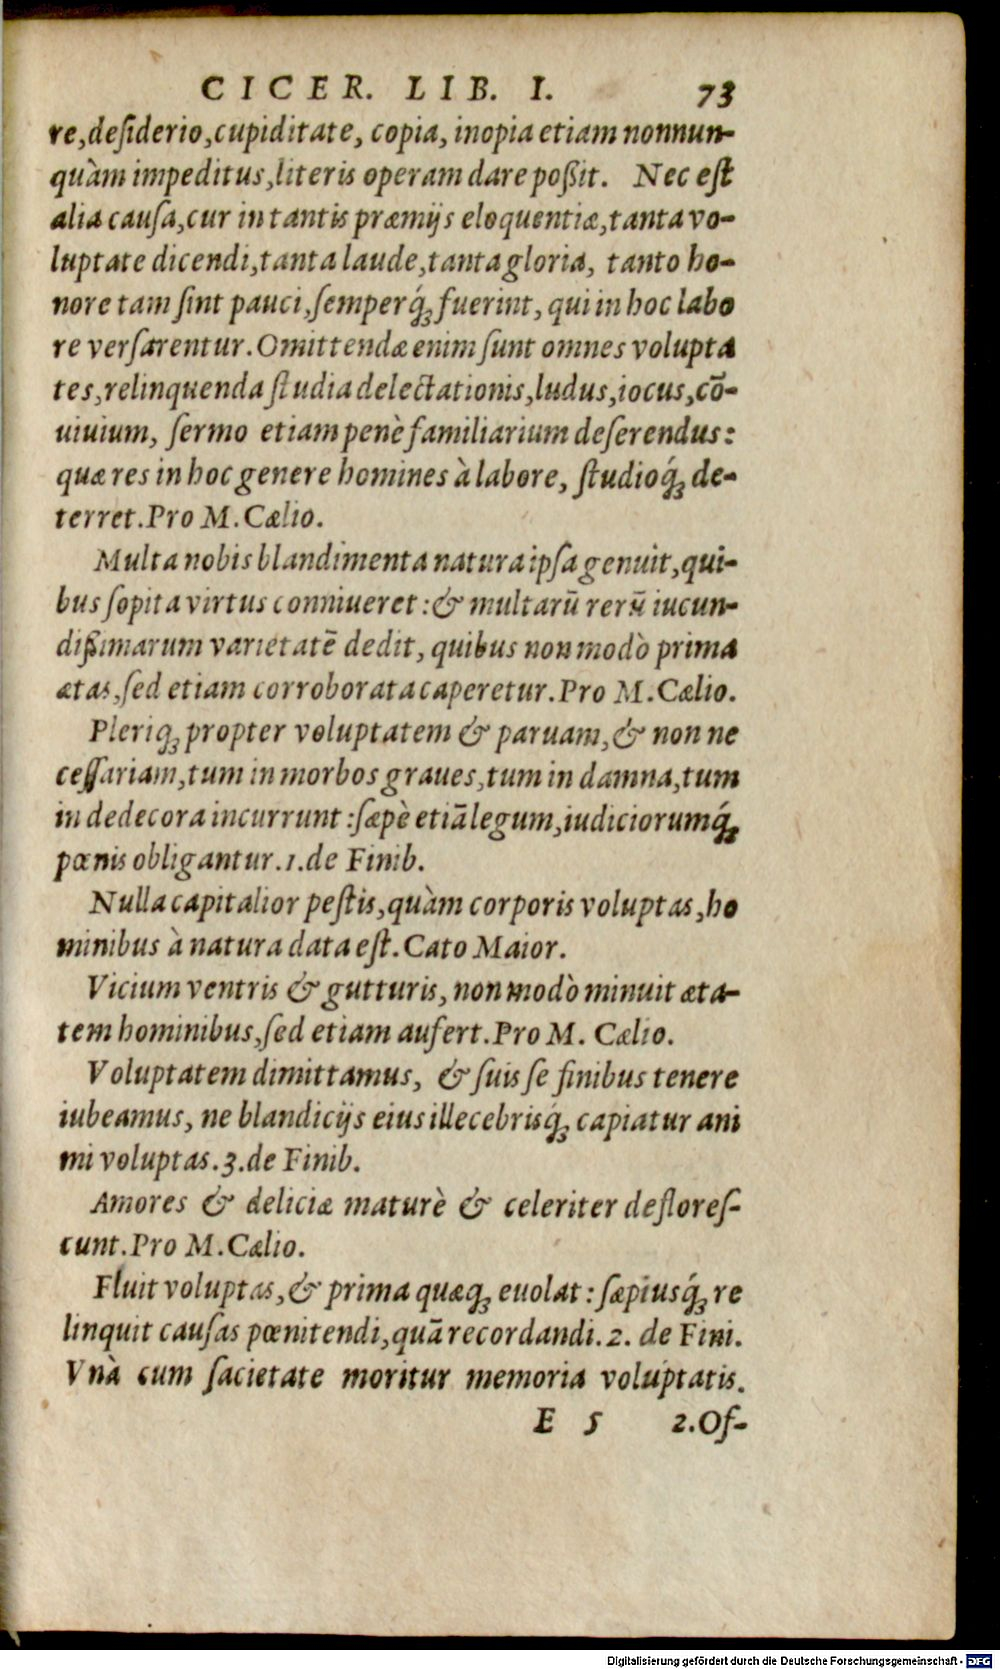 CICER. LIB. I. 73
re,desiderio,cupiditate, copia, inopia etiam nonnun-
quàm impeditus,literis operam dare poßit. Nec est
alia causa,cur in tantis præmijs eloquentiæ,tanta vo-
luptate dicendi,tanta laude,tanta gloria, tanto ho-
nore tam sint pauci,semperq́; fuerint, qui in hoc labo
re versarentur. Omittendæ enim sunt omnes volupta
tes,relinquenda studia delectationis,ludus,iocus,cō-
uiuium, sermo etiam penè familiarium deserendus:
quæ res in hoc genere homines à labore, studioq́; de-
terret. Pro M. Cælio.
Multa nobis blandimenta natura ipsa genuit, qui-
bus sopita virtus conniueret: & multarū rerū iucun-
dißimarum varietatē dedit, quibus non modò prima
ætas,sed etiam corroborata caperetur. Pro M. Cælio.
Pleriq; propter voluptatem & paruam, & non ne
cessariam,tum in morbos graues,tum in damna,tum
in dedecora incurrunt: sæpè etiā legum,iudiciorumq́;
pœnis obligantur. 1. de Finib.
Nulla capitalior pestis,quàm corporis voluptas,ho
minibus à natura data est. Cato Maior.
Vicium ventris & gutturis, non modò minuit æta-
tem hominibus,sed etiam aufert. Pro M. Cælio.
Voluptatem dimittamus, & suis se finibus tenere
iubeamus, ne blandicijs eius illecebrisq́; capiatur ani
mi voluptas. 3. de Finib.
Amores & deliciæ maturè & celeriter deflores-
cunt. Pro M. Cælio.
Fluit voluptas, & prima quæq; euolat: sæpiusq́; re
linquit causas pœnitendi,quā recordandi. 2. de Fini.
Vnà cum sacietate moritur memoria voluptatis.
E 5 2.Of-
Digitalisierung gefördert durch die Deutsche Forschungsgemeinschaft - DFG